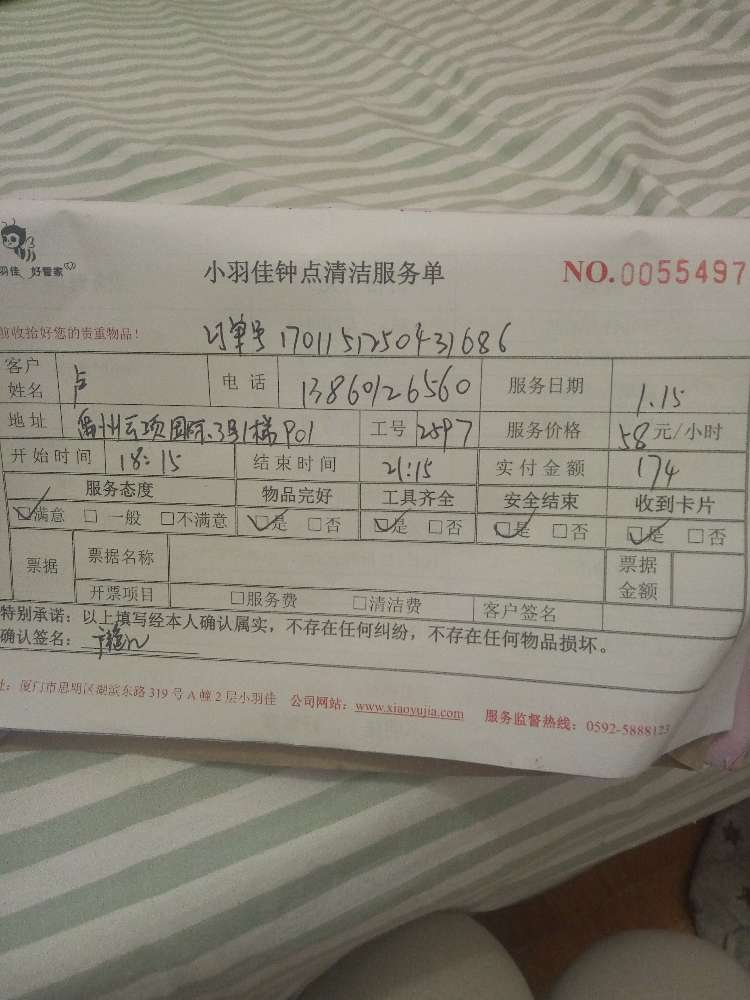 羽佳 好管家
小羽佳钟点清洁服务单 NO.0055497
前收拾好您的贵重物品!
订单号 1701151250431686
客户姓名 卢 电话 13860126560 服务日期 1.15
地址 禹州云顶国际.3号1梯901 工号 2597 服务价格 58元/小时
开始时间 18:15 结束时间 21:15 实付金额 174
服务态度 物品完好 工具齐全 安全结束 收到卡片
☑满意 □一般 □不满意 ☑是 □否 ☑是 □否 ☑是 □否 ☑是 □否
票据 票据名称 票据金额
开票项目 □服务费 □清洁费 客户签名
特别承诺:以上填写经本人确认属实,不存在任何纠纷,不存在任何物品损坏。
确认签名:
址:厦门市思明区湖滨东路319号A幢2层小羽佳 公司网站:www.xiaoyujia.com 服务监督热线:0592-5888123